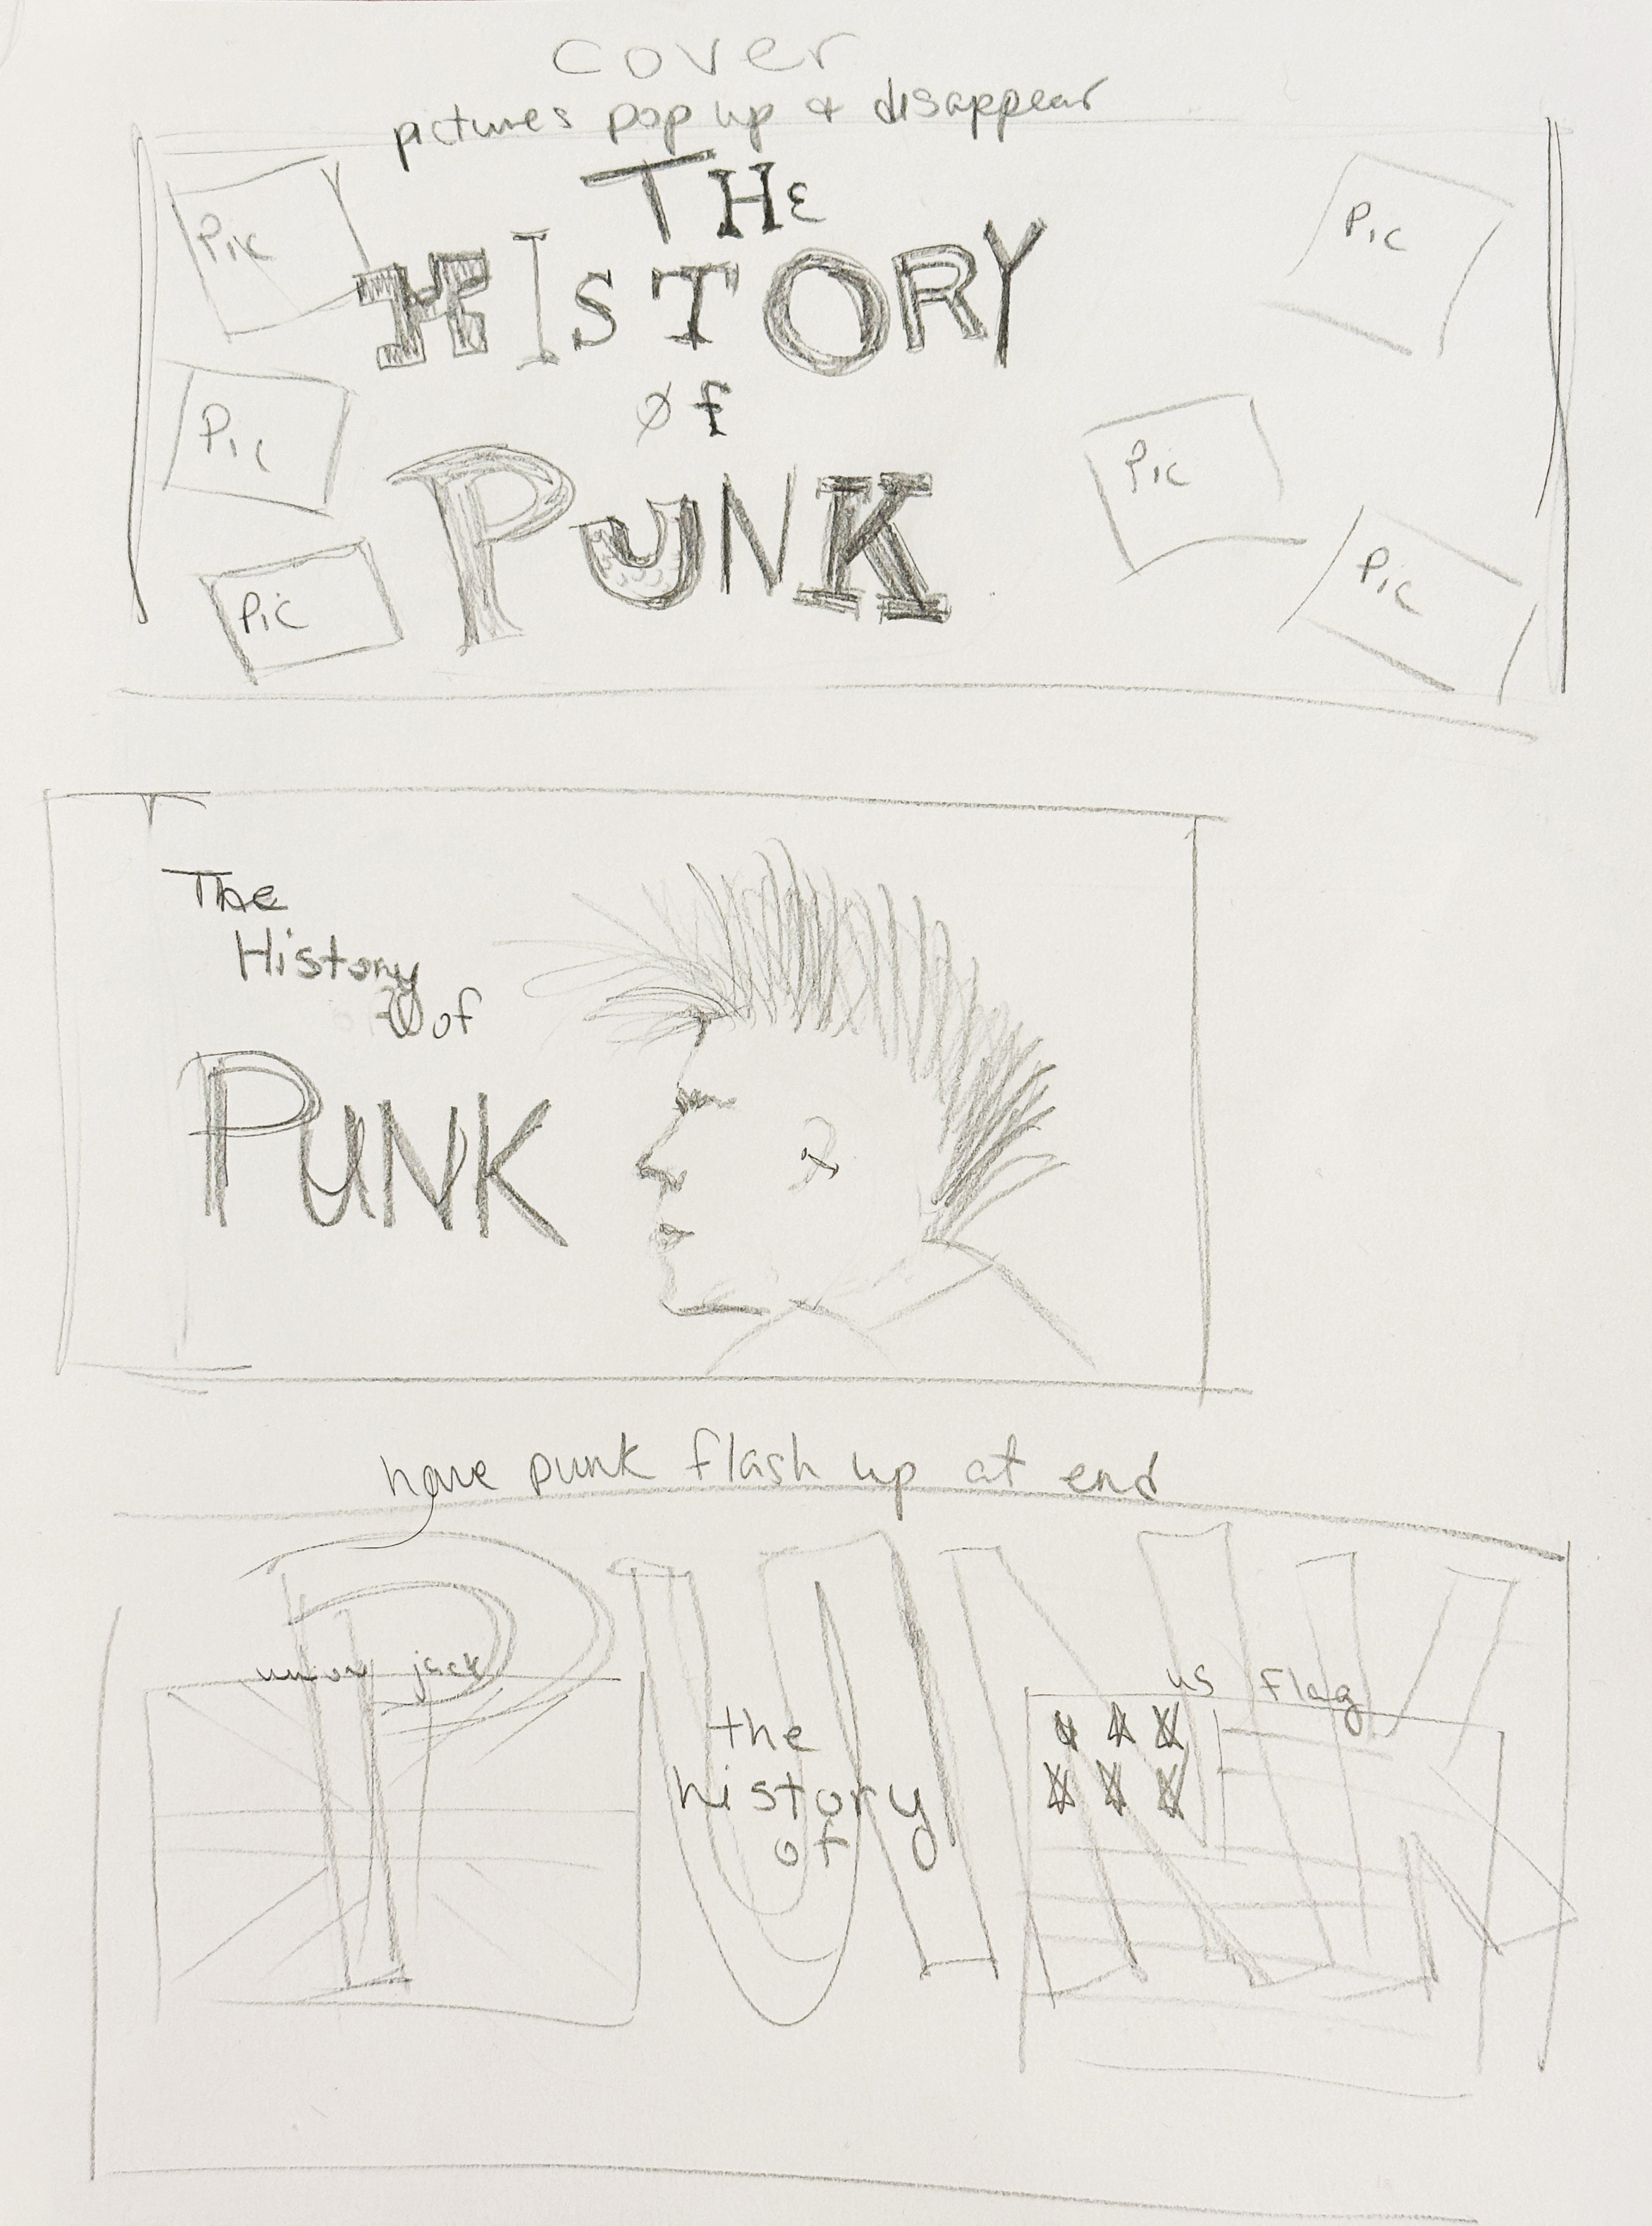 cover
pictures pop up & disappear
THE
HISTORY
Øf
PUNK
Pic
Pic
Pic
Pic
Pic
Pic
The
History
of
PUNK
have punk flash up at end
PUNK
union jack
the
history
of
us flag